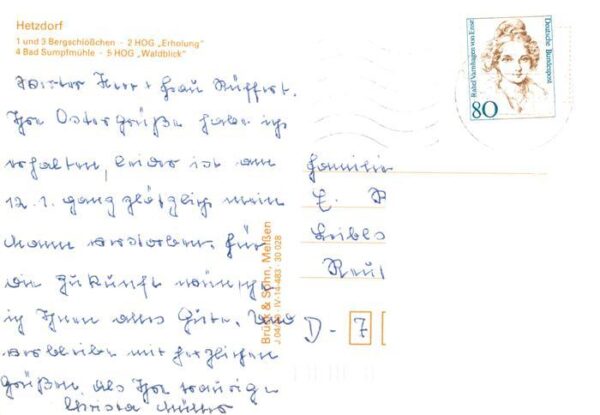 Hetzdorf
1 und 3 Bergschlößchen · 2 HOG „Erholung"
4 Bad Sumpfmühle · 5 HOG „Waldblick"
Herr + Frau Küffert.
Ihre Ostergrüße habe ich
erhalten, leider ist am
12.1. ganz plötzlich mein
Mann verstorben. Für
die Zukunft wünsche
ich Ihnen alles Gute. Und
verbleibe mit herzlichen
Grüßen als Ihre traurige
Christa Müller
Brück & Sohn, Meißen
IV-14-483 30 028
Rahel Varnhagen von Ense
Deutsche Bundespost
80
Familie
E. R
D - 7